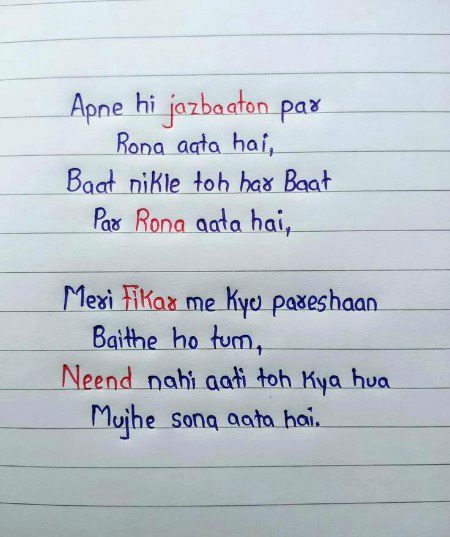 Apne hi jazbaaton par
Rona aata hai,
Baat nikle toh har Baat
Par Rona aata hai,
Meri Fikar me Kyu pareshaan
Baithe ho tum,
Neend nahi aati toh Kya hua
Mujhe sona aata hai.